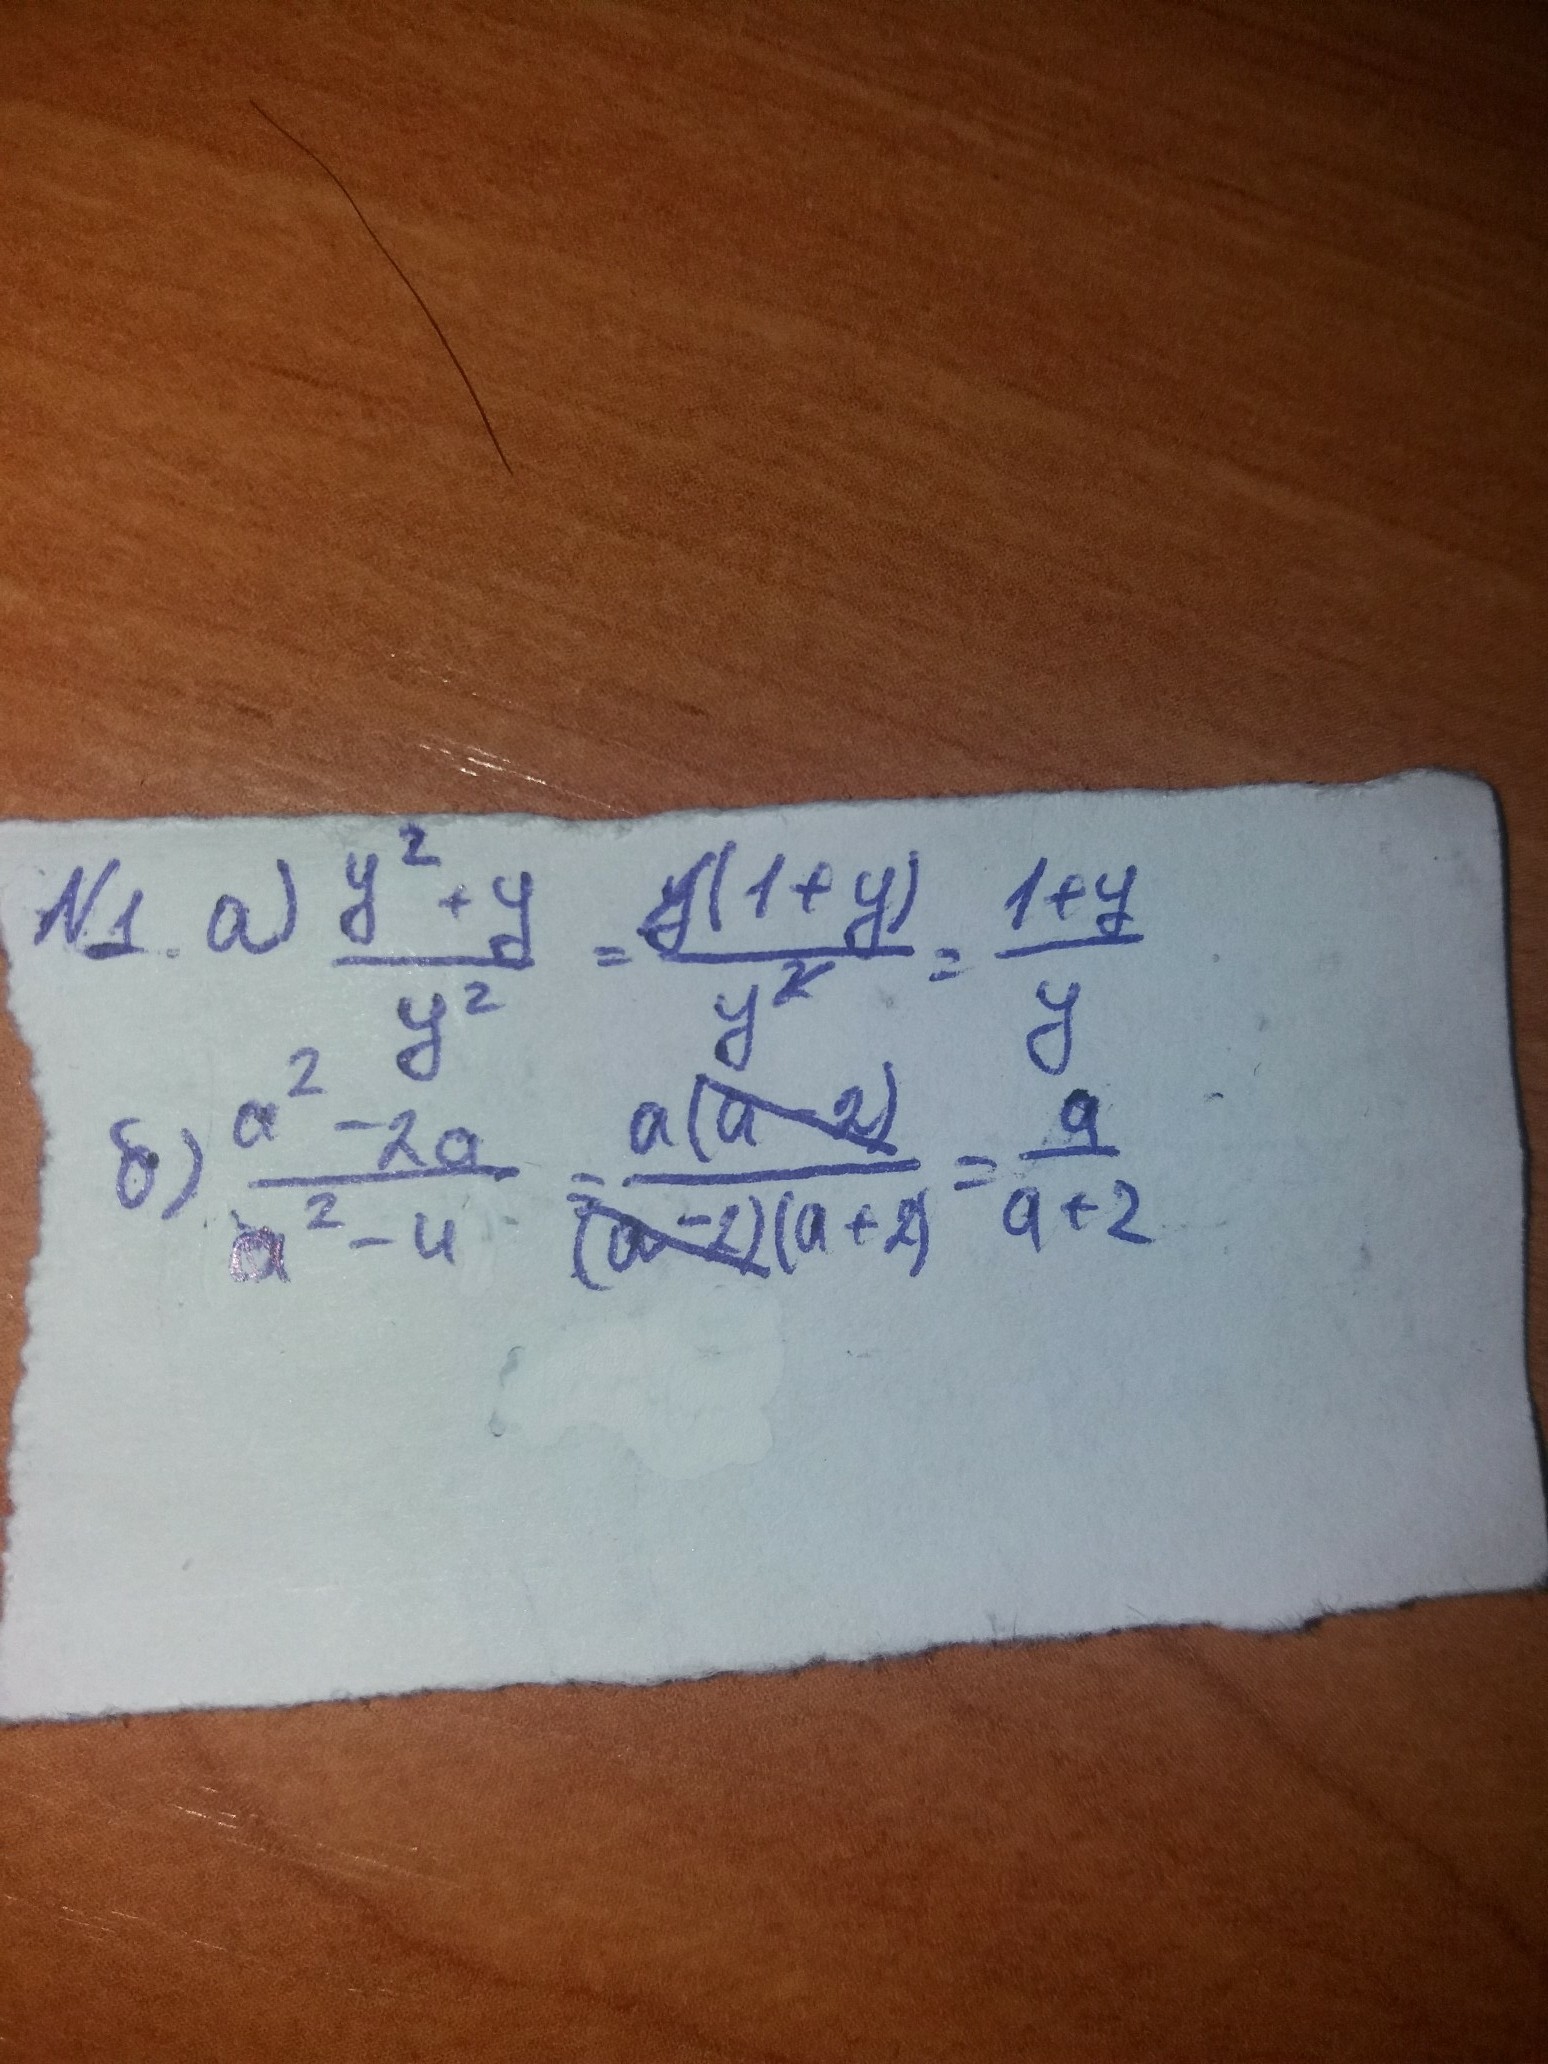 N1. а) (y² + y)/y² = y(1 + y)/y² = (1 + y)/y
б) (a² - 2a)/(a² - 4) = a(a - 2)/((a - 2)(a + 2)) = a/(a + 2)